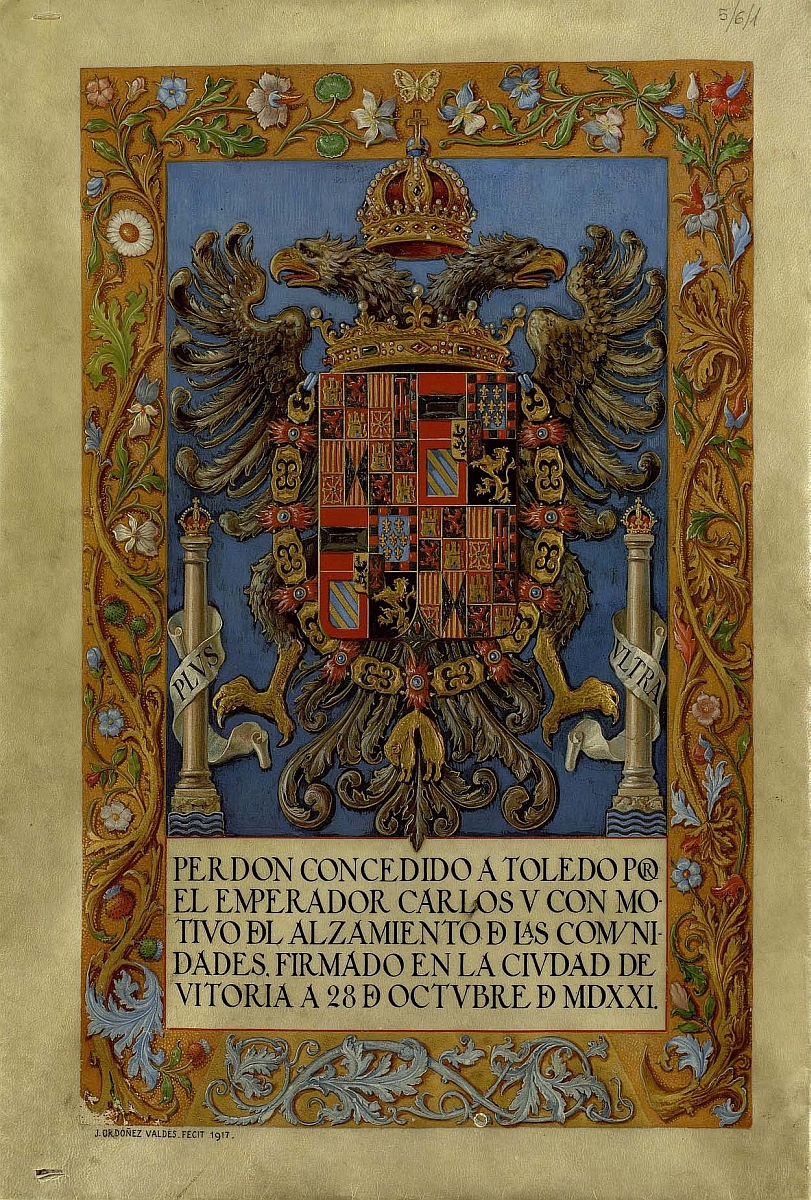 5/6/1
PLVS
VLTRA
PERDON CONCEDIDO A TOLEDO POR
EL EMPERADOR CARLOS V CON MO-
TIVO DL ALZAMIENTO D LAS COMVNI-
DADES, FIRMADO EN LA CIVDAD DE
VITORIA A 28 D OCTVBRE D MDXXI.
J. ORDOÑEZ VALDES. FECIT 1917.